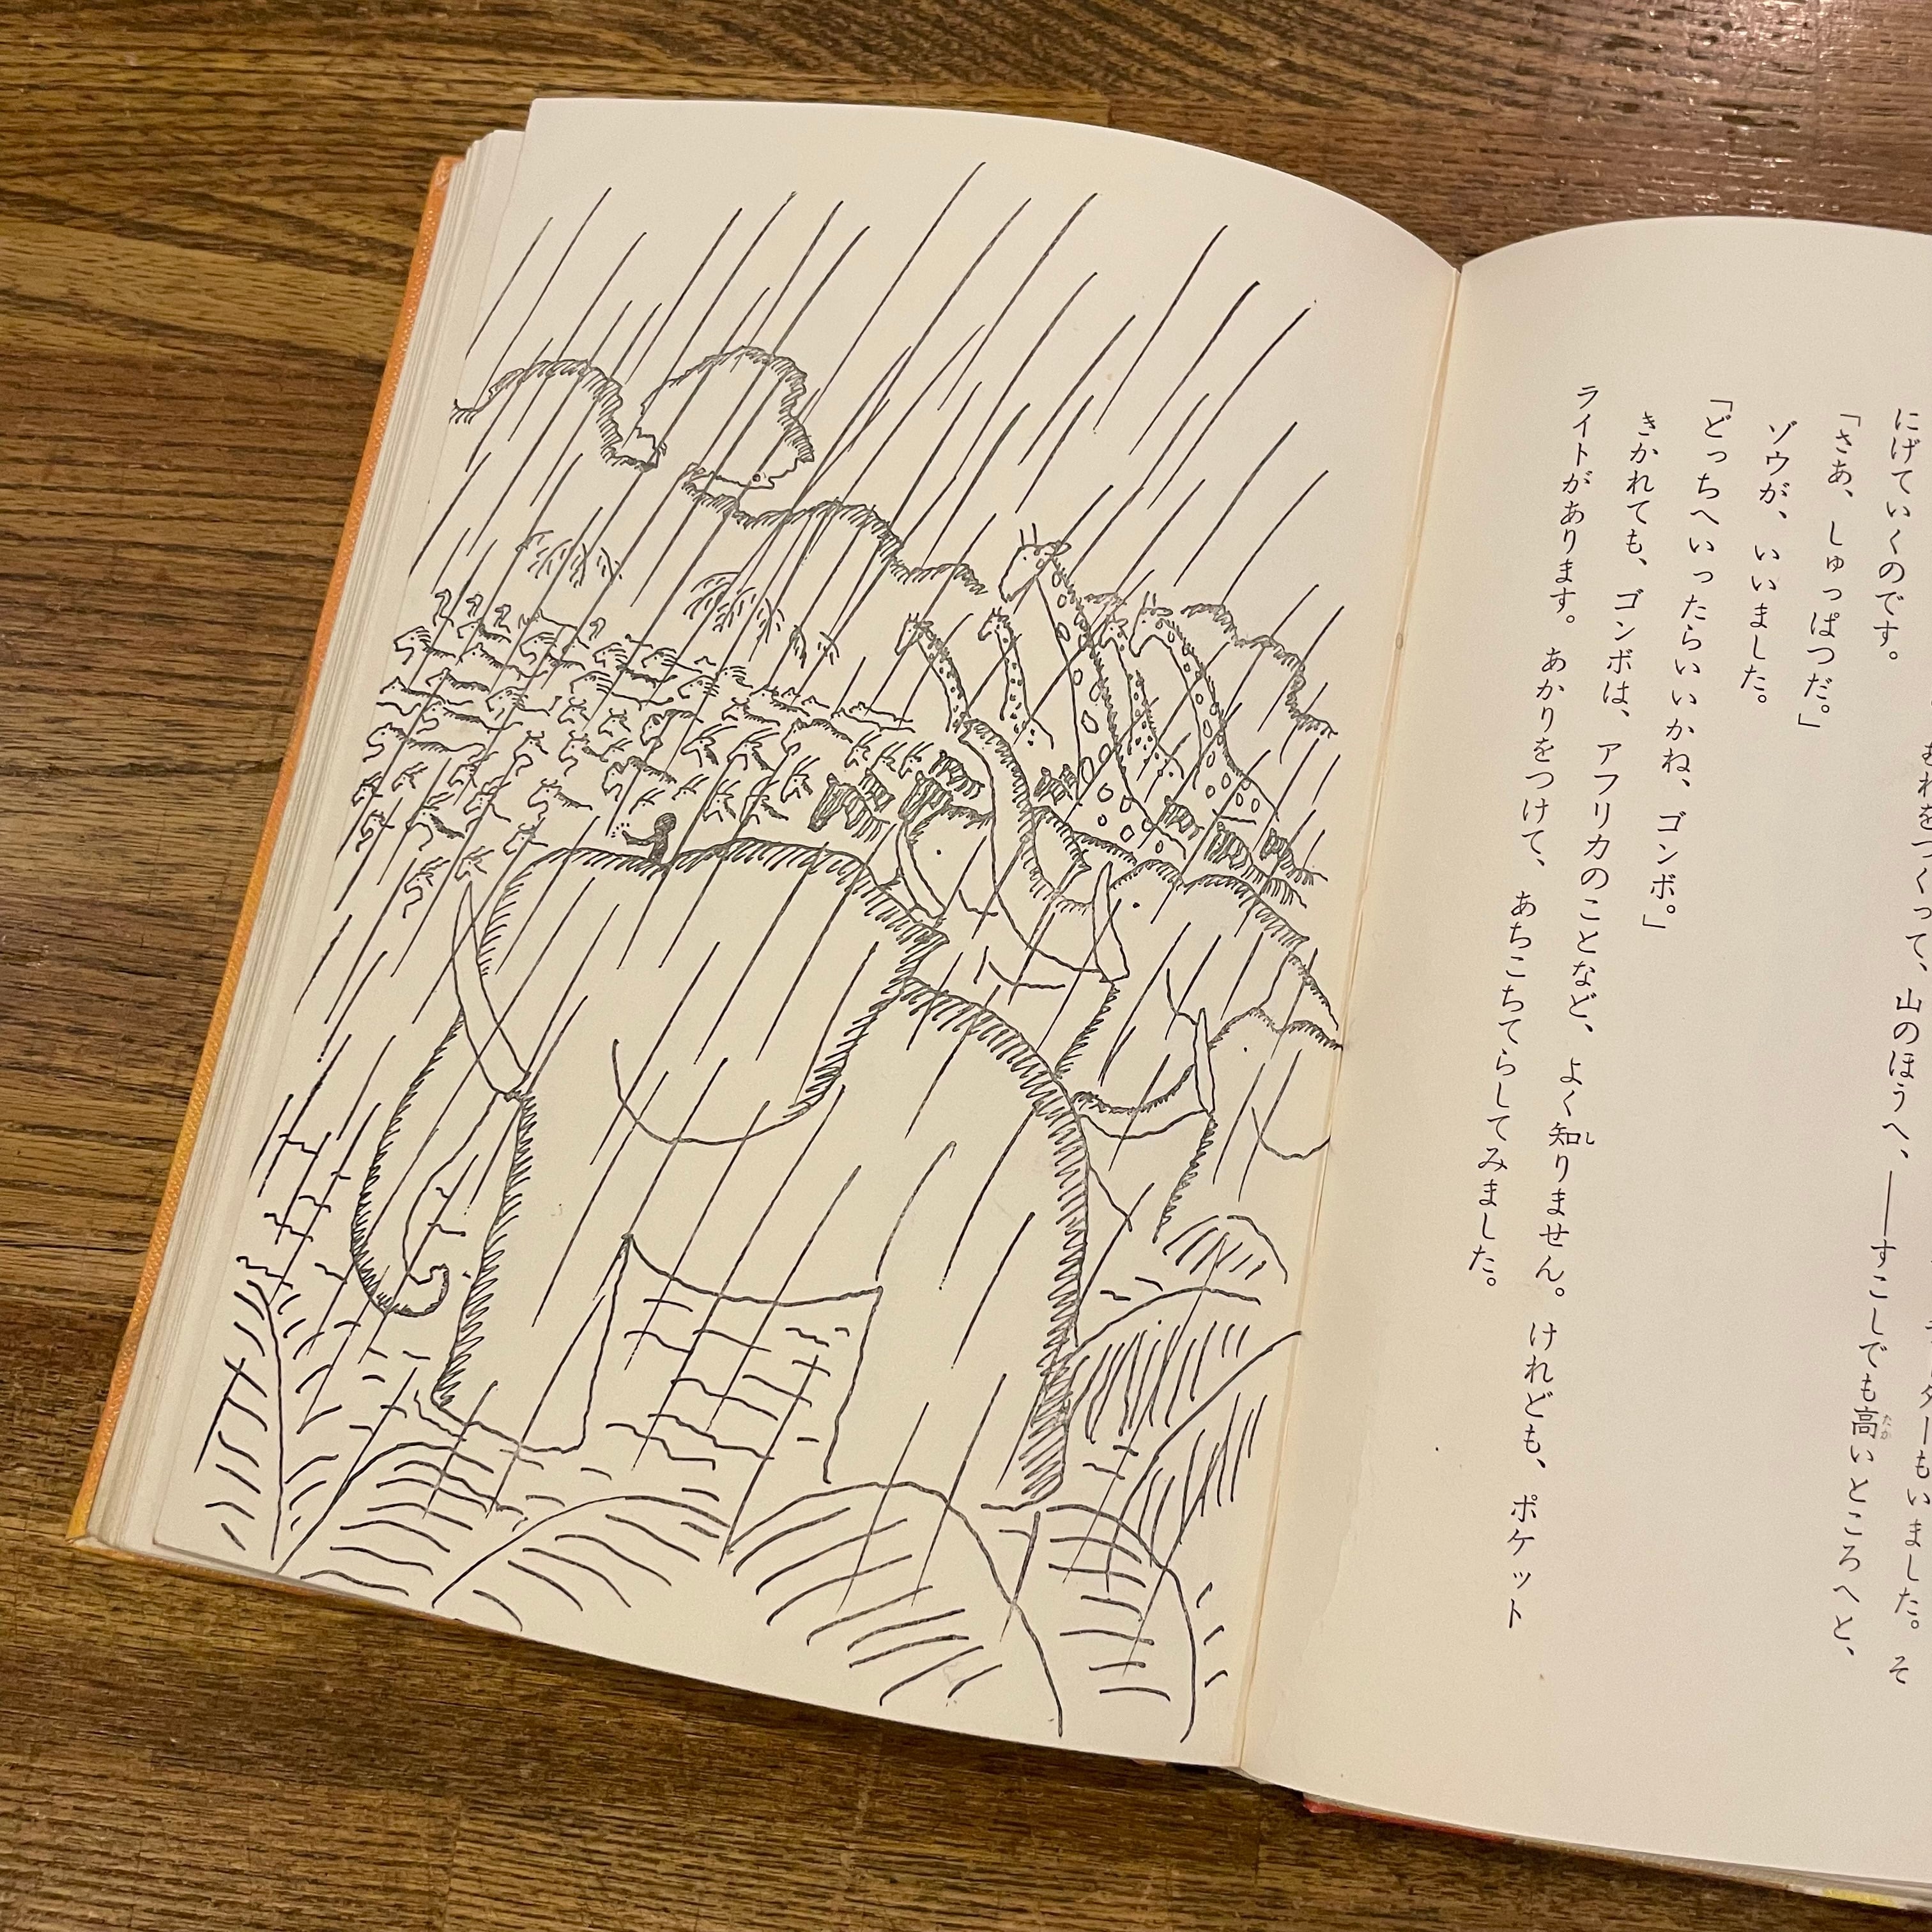 もいました。そ
むれをつくって、山のほうへ、――すこしでも高いところへと、
にげていくのです。
「さあ、しゅっぱつだ。」
ゾウが、いいました。
「どっちへいったらいいかね、ゴンボ。」
きかれても、ゴンボは、アフリカのことなど、よく知りません。けれども、ポケット
ライトがあります。あかりをつけて、あちこちてらしてみました。